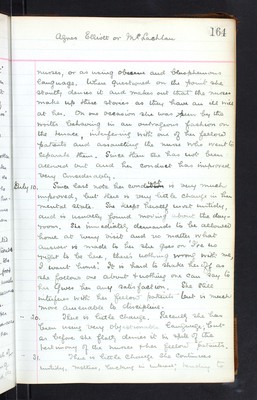 164
Agnes Elliott or McLachlan
nurses, or as using obscene and blasphemous
language. When questioned on the point she
stoutly denies it and makes out that the nurses
make up these stories as they have an ill will
at her. On one occasion she was seen by the
writer behaving in an outrageous fashion on
the terrace, interfering with one of her fellow
patients and assaulting the nurse who went to
separate them. Since then she has not been
allowed out and her conduct has improved
very considerably.
July 10. Since last note her condition is very much
improved, but there is very little change in her
mental state. She keeps herself most untidily,
and is usually found moving about the day-
room. She immediately demands to be allowed
home at every visit and no matter what
answer is made to her she goes on "I've no
right to be here, there's nothing wrong with me,
I want home". It is hard to shake her off as
she follows one about & nothing one can say to
her gives her any satisfaction. She still
interferes with her fellow patients but is much
more amenable to discipline.
- 20. There is little change. Recently she has
been using very objectionable language, but
as before she flatly denies it in spite of the
testimony of the nurses & her fellow patients.
31. There is little change. She continues
untidy, restless,